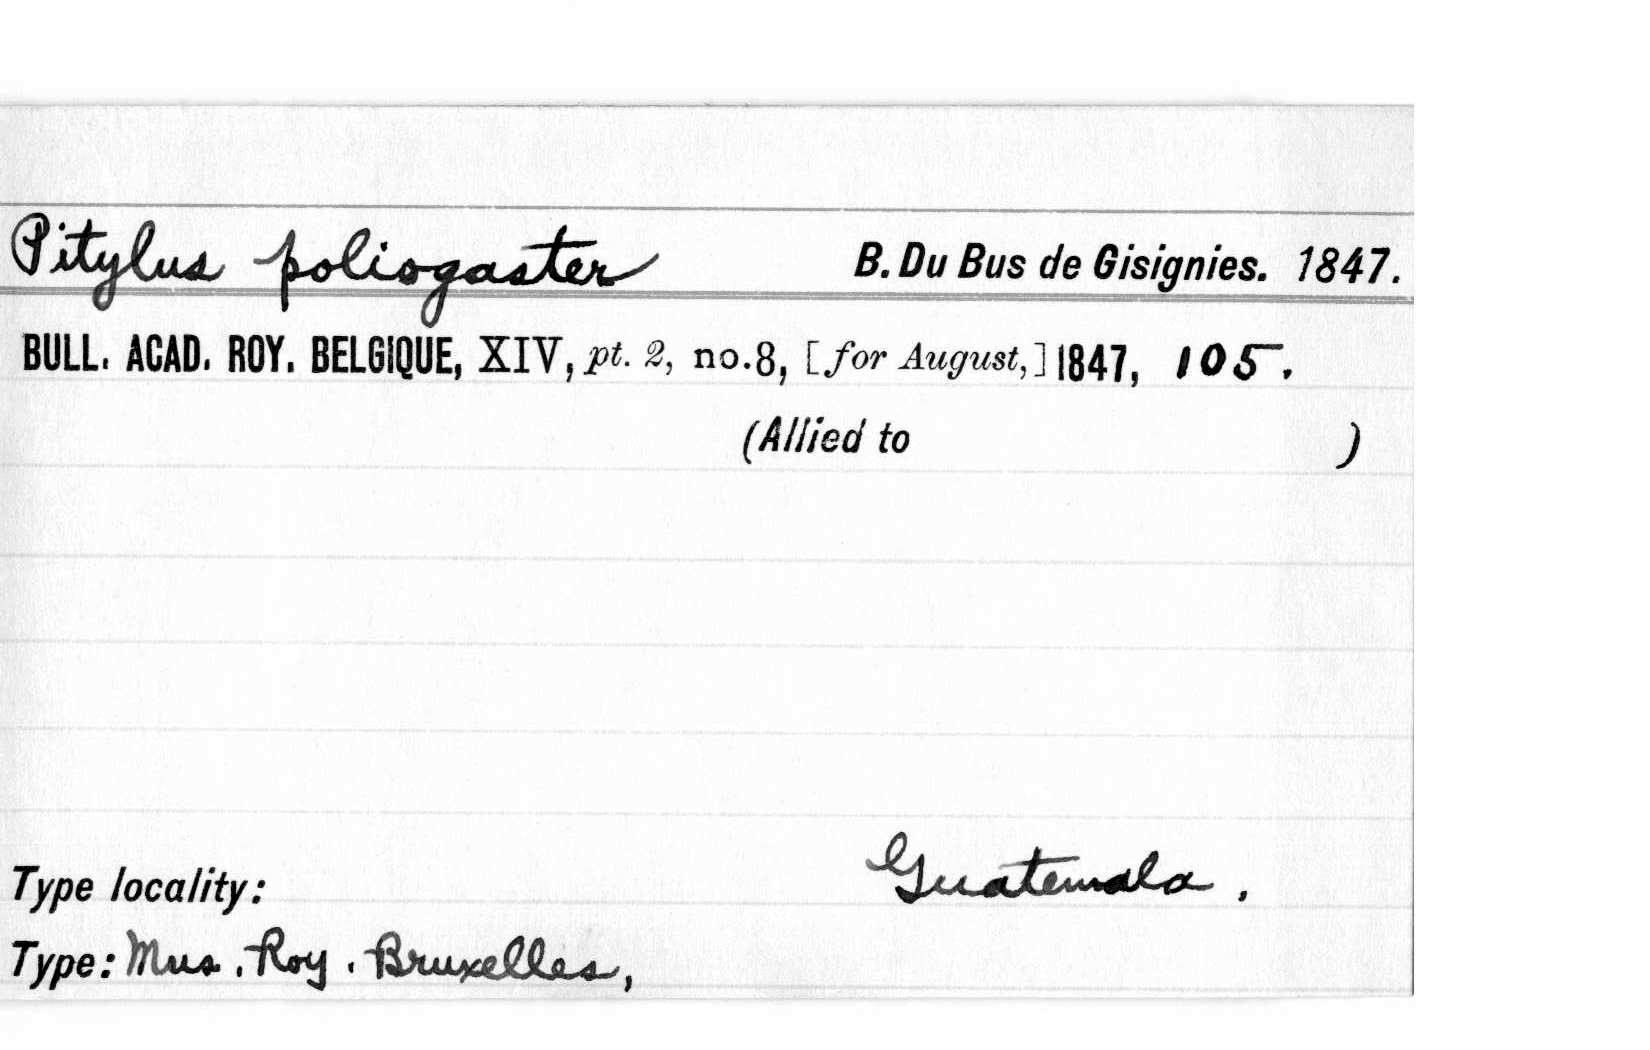 Pitylus poliogaster B. Du Bus de Gisignies. 1847.
BULL. ACAD. ROY. BELGIQUE, XIV, pt. 2, no.8, [for August,] 1847, 105.
(Allied to )
Type locality: Guatemala.
Type: Mus. Roy. Bruxelles,